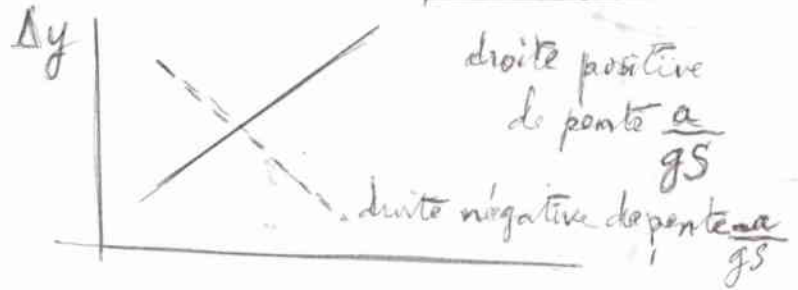 Δy
droite positive
de pente a/gS
droite négative de pente -a/gS